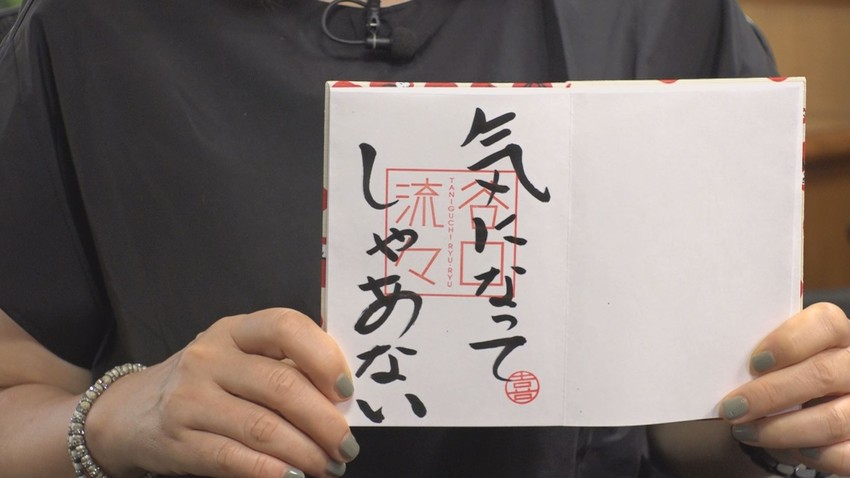 気になって
しゃあない
谷口
流々
TANIGUCHI RYU-RYU
喜